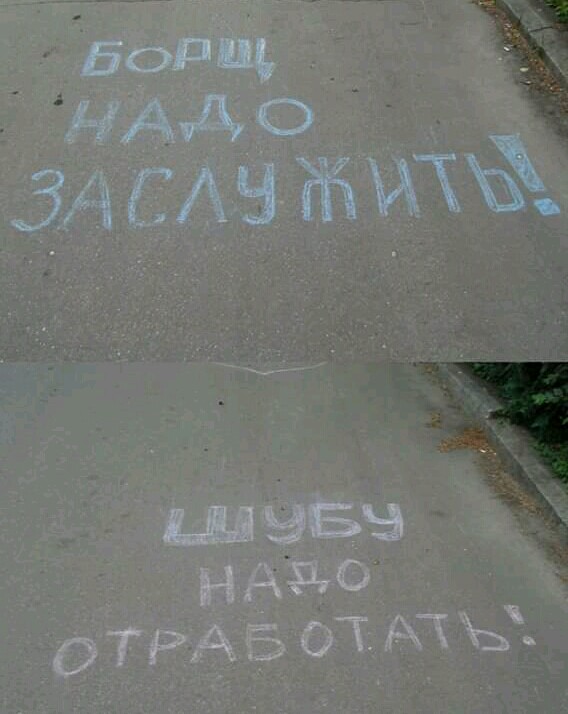 БОРЩ
НАДО
ЗАСЛУЖИТЬ!
ШУБУ
НАДО
ОТРАБОТАТЬ!